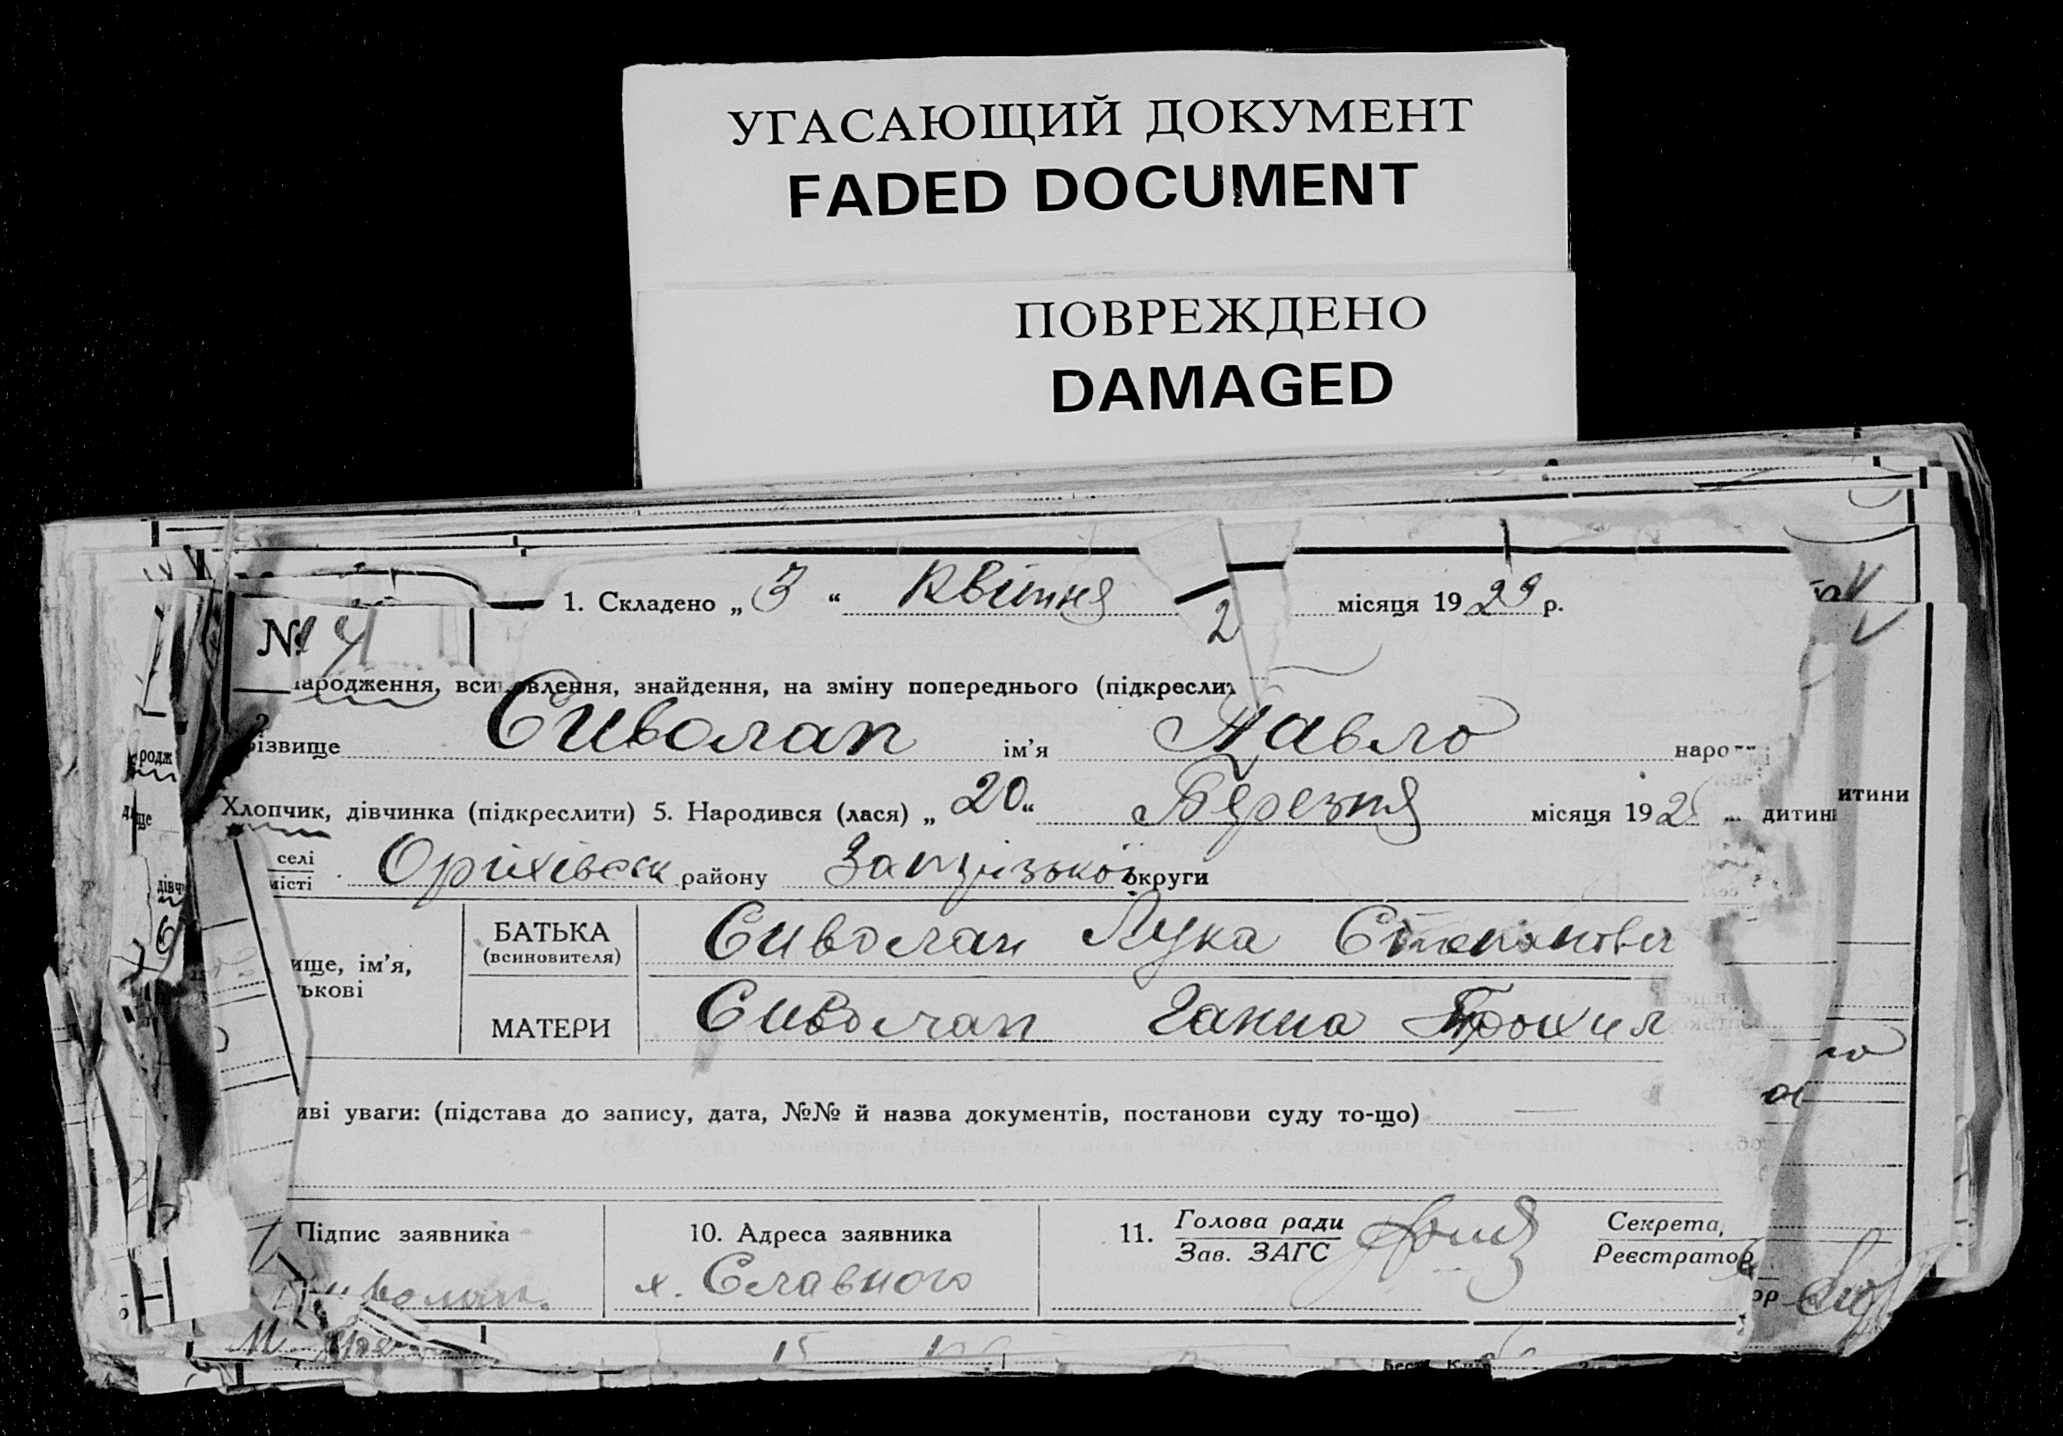 УГАСАЮЩИЙ ДОКУМЕНТ
FADED DOCUMENT
ПОВРЕЖДЕНО
DAMAGED
1. Складено „ 3 “ Квітня місяця 1929 р.
2
№ 4
народження, всиновлення, знайдення, на зміну попереднього (підкреслит
різвище Сиволап ім'я Павло наро
Хлопчик, дівчинка (підкреслити) 5. Народився (лася) „ 20 “ Березня місяця 192 дитин
итини
селі
місті Оріхівськ району Запорізької округи
БАТЬКА
(всиновителя) Сиволап Лука Степанови
ище, ім'я,
ькові
МАТЕРИ Сиволап Ганна Трохил
иві уваги: (підстава до запису, дата, №№ й назва документів, постанови суду то-що)
Підпис заявника 10. Адреса заявника 11. Голова ради Секрета
Зав. ЗАГС Реєстратор
иволап. х. Славного